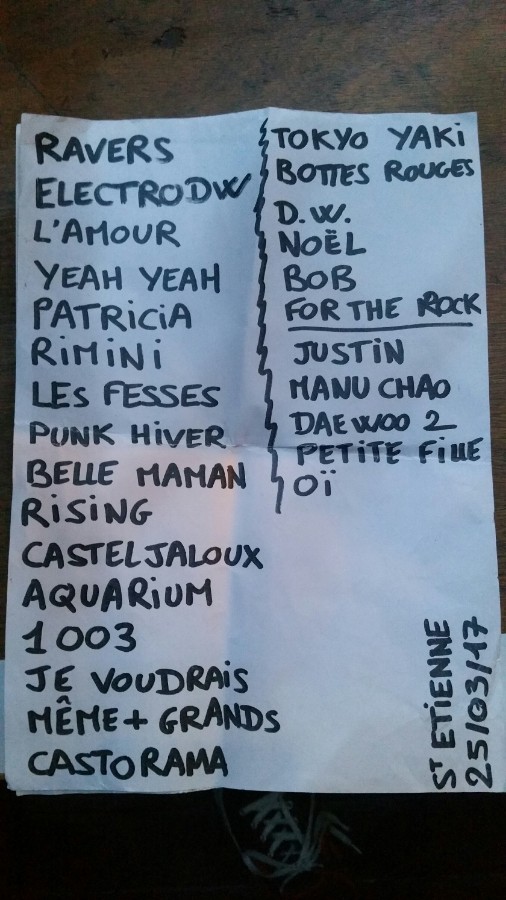 RAVERS
ELECTRODW
L'AMOUR
YEAH YEAH
PATRiCiA
RiMiNi
LES FESSES
PUNK HiVER
BELLE MAMAN
RiSiNG
CASTELJALOUX
AQUARiUM
1003
JE VOUDRAiS
MÊME + GRANDS
CASTORAMA
TOKYO YAKi
BOTTES ROUGES
D.W.
NOËL
BOB
FOR THE ROCK
JUSTiN
MANU CHAO
DAEWOO 2
PETiTE FiLLE
Oï
ST ETiENNE
25/03/17